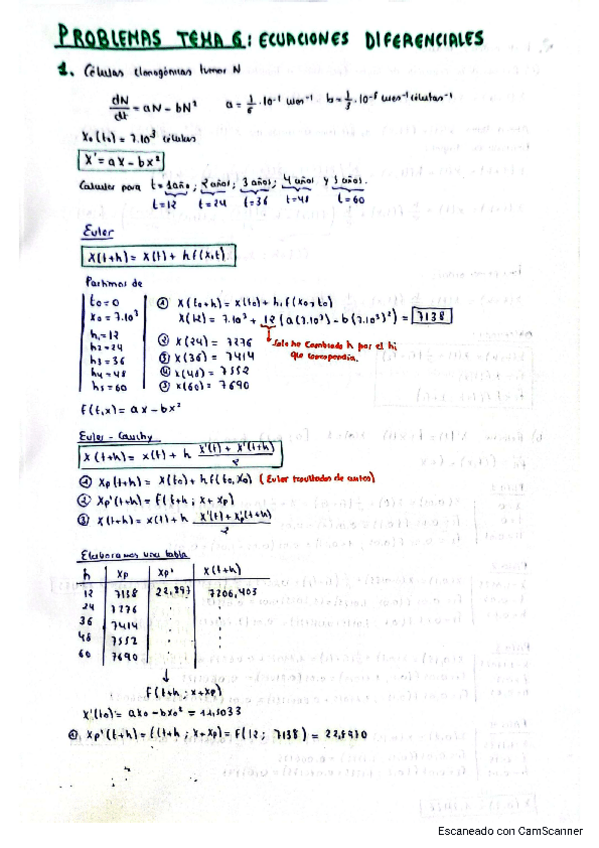 PROBLEMAS TEMA 6: ECUACIONES DIFERENCIALES
1. Células clonogénicas tumor N
dN/dt = aN - bN² a = 1/6 · 10⁻¹ mes⁻¹ b = 1/3 · 10⁻⁶ mes⁻¹ células⁻¹
X₀(t₀) = 7·10³ células
X' = ax - bx²
Calcular para t = 1 año; 2 años; 3 años; 4 años y 5 años.
t=12 t=24 t=36 t=48 t=60
Euler
X(t+h) = X(t) + h f(x,t)
Partimos de
t₀ = 0
x₀ = 7·10³
h₁ = 12
h₂ = 24
h₃ = 36
h₄ = 48
h₅ = 60
① X(t₀+h) = X(t₀) + h₁ f(x₀, t₀)
X(12) = 7·10³ + 12 (a(7·10³) - b(7·10³)²) = 7138
Solo he cambiado h por el hi
que correspondía.
② X(24) = 7276
③ X(36) = 7414
④ X(48) = 7552
⑤ X(60) = 7690
f(t,x) = ax - bx²
Euler - Cauchy
X(t+h) = x(t) + h X'(t) + X'(t+h) / 2
① Xp(t+h) = X(t₀) + h f(t₀, x₀) (Euler resultados de antes)
② Xp'(t+h) = f(t+h; x+xp)
③ X(t+h) = x(t) + h X'(t) + X'p(t+h) / 2
Elaboramos una tabla
h Xp Xp' X(t+h)
12 7138 22,897 7206,403
24 7276 . .
36 7414 . .
48 7552 . .
60 7690 . .
↓
f(t+h; x+xp)
X'(t₀) = ax₀ - bx₀² = 11,5033
① Xp'(t+h) = f(t+h; x+xp) = f(12; 7138) = 22,8970
Escaneado con CamScanner